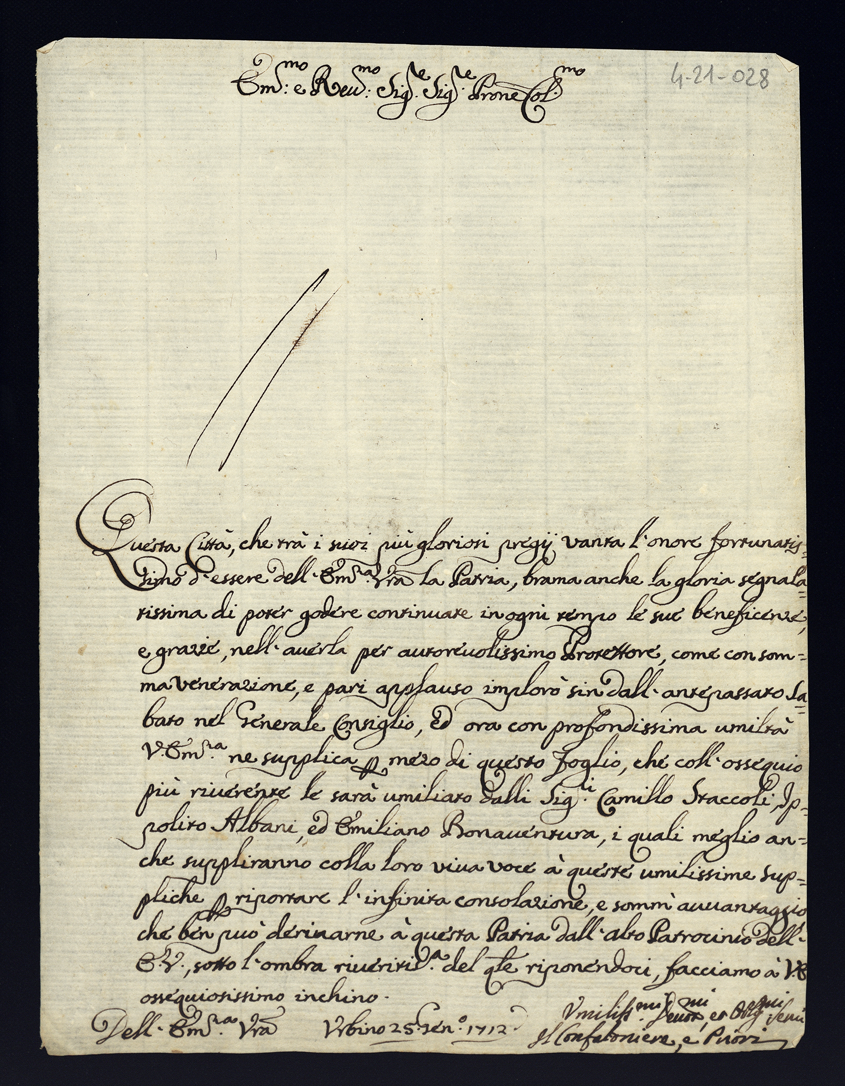 4-21-028
Em.mo e Reu.mo Sig.re Sig.re Prone Col.mo
Questa Città, che trà i suoi più gloriosi pregij, vanta l'onore fortunatis=
simo d'essere dell'Em.za Vrã la Patria, brama anche la gloria segnala=
tissima di poter godere continuate in ogni tempo le sue beneficenze,
e grazie, nell'auerla per autoreuolissimo Protettore, come con som=
ma venerazione, e pari applauso implorò sin dall'antepassato Sa=
bato nel Generale Consiglio, ed ora con profondissima umiltà
V. Em.za ne supplica p mezo di questo foglio, che coll'ossequio
più riuerente le sarà umiliato dalli Sig.ri Camillo Staccoli, Ip=
polito Albani, ed Emiliano Bonauentura, i quali meglio an=
che suppliranno colla loro viua voce à queste umilissime sup=
pliche p riportare l'infinita consolazione, e sommi auuantaggio
che ben può deriuarne à questa Patria dall'alto Patrocinio dell'
E. V., sotto l'ombra riueritis.a del qle riponendoci, facciamo à
ossequiosissimo inchino.
Dell'Em.za Vrã Vrbino 25 Gen.o 1712
Vmiliss.mi Deuot.mi et Oblig.mi Serui
Il Confaloniere, e Priori